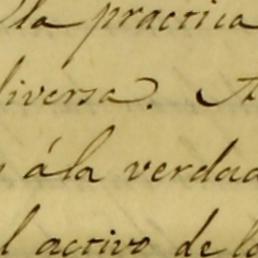 la practica
diversa. A
á la verdad
l activo de lo